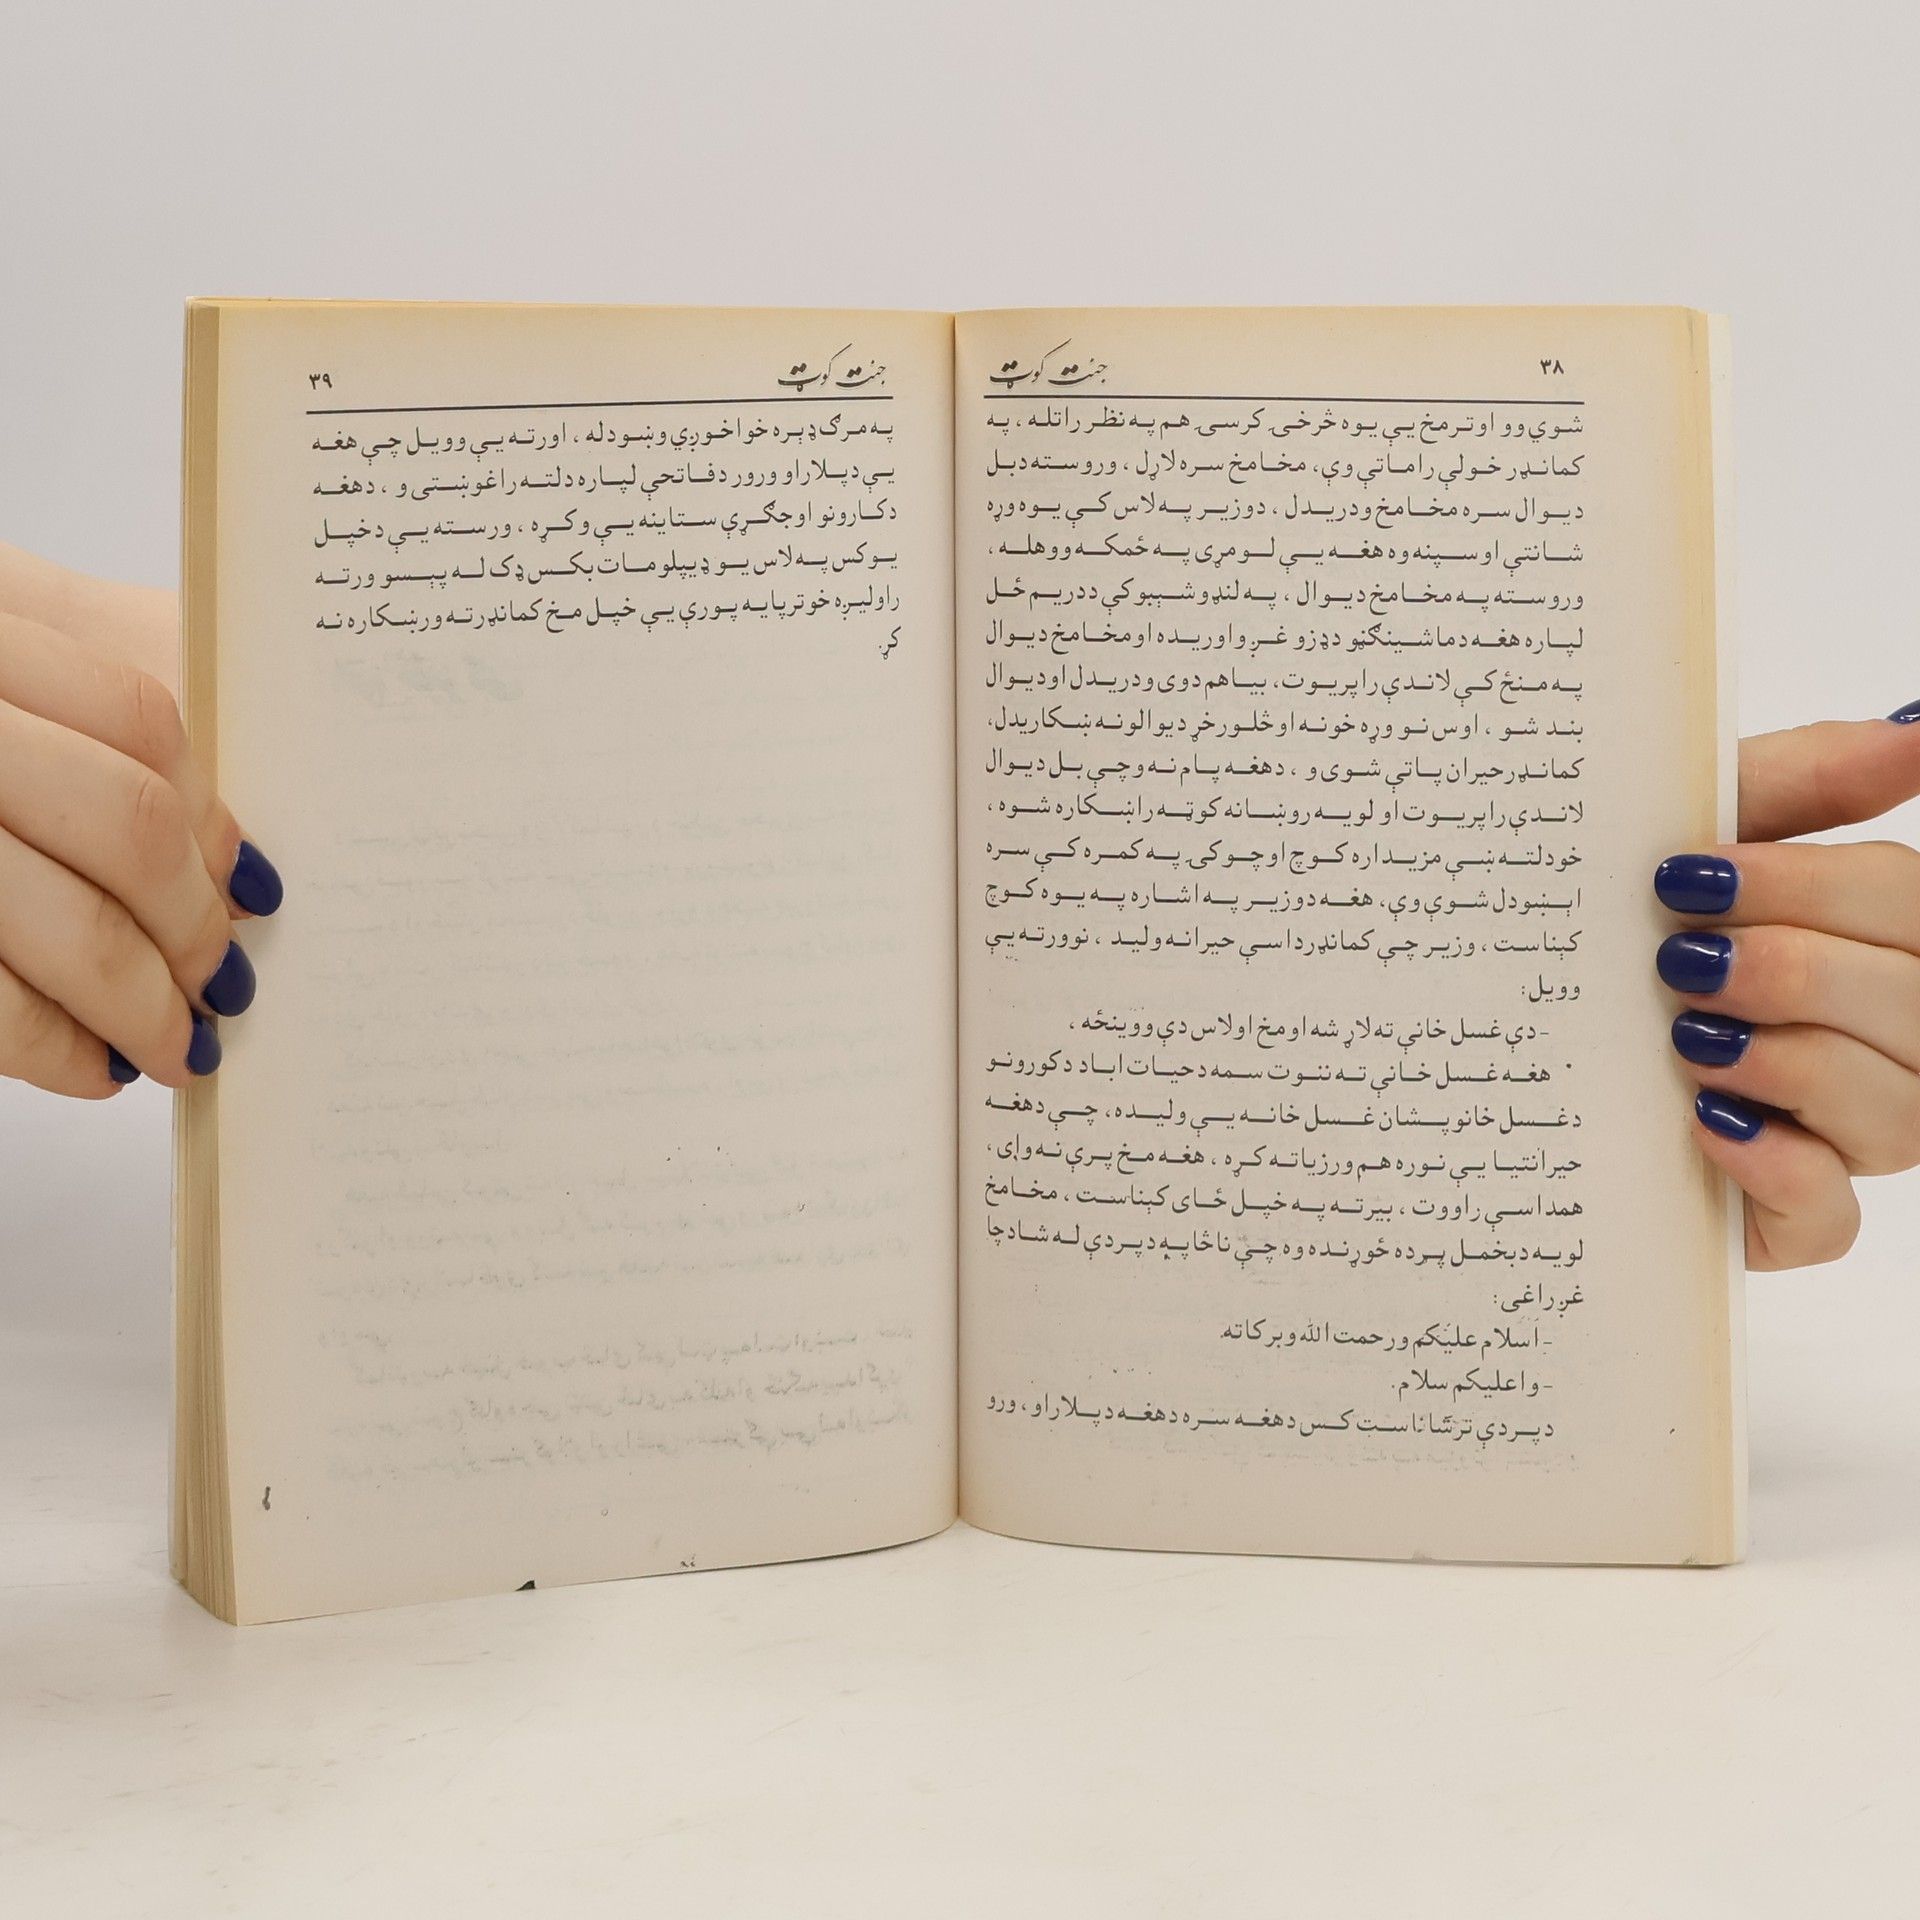 ۳۸ جنت کوټ
شوي وو او تر مخ يې يوه څرخۍ کرسۍ هم په نظر راتله ، په
کمانډر خولې راماتې وې، مخامخ سره لاړل ، وروسته د بل
ديوال سره مخامخ ودريدل ، د وزير په لاس کې يوه وړه
شانتې اوسپنه وه هغه يې لومړی په ځمکه ووهله ،
وروسته په مخامخ ديوال ، په لنډو شېبو کې د دريم ځل
لپاره هغه د ماشينګڼو د ډزو غږ واوريده او مخامخ ديوال
په منځ کې لاندې راپريوت، بيا هم دوی ودريدل او ديوال
بند شو ، اوس نو وړه خونه او څلور خړ ديوالونه ښکاريدل،
کمانډر حيران پاتې شوی و ، د هغه پام نه و چې بل ديوال
لاندې راپريوت او لويه روښانه کوټه راښکاره شوه ،
خو دلته ښې مزيداره کوچ او چوکۍ په کمره کې سره
اېښودل شوي وې، هغه د وزير په اشاره په يوه کوچ
کېناست ، وزير چې کمانډر داسې حيرانه وليد ، نو ورته يې
وويل:
- دې غسل خانې ته لاړ شه او مخ او لاس دې ووينځه ،
هغه غسل خانې ته ننوت سمه د حيات اباد د کورونو
د غسل خانو پشان غسل خانه يې وليده، چې د هغه
حيرانتيا يې نوره هم ورزياته کړه ، هغه مخ پرې نه واى ،
همداسې راووت ، بيرته په خپل ځای کېناست ، مخامخ
لويه د بخمل پرده ځوړنده وه چې ناڅاپه د پردې له شا د چا
غږ راغی:
- اسلام عليکم ورحمت الله وبرکاته
- واعليکم سلام.
د پردې تر شا ناست کس د هغه سره د هغه د پلار او ، ورو
جنت کوټ ۳۹
په مرګ ډېره خواخوږي وښودله ، او رته يې وويل چې هغه
يې د پلار او ورور د فاتحې لپاره دلته راغوښتی و ، د هغه
د کارونو او جګړې ستاينه يې وکړه ، ورسته يې د خپل
يو کس په لاس يو ډيپلومات بکس ډک له پېسو ورته
راوليږه خو تر پايه پورې يې خپل مخ کمانډر ته ورښکاره نه
کړ.